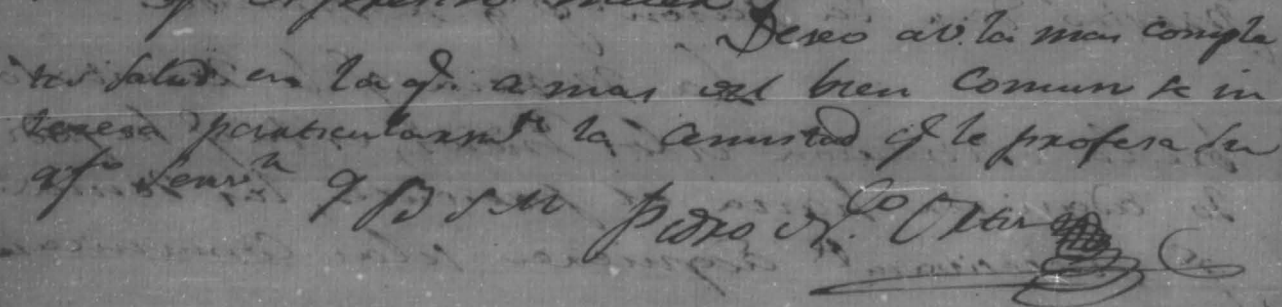 Deseo a V. la mas comple
ta salud en la q.e a mas del bien comun se in
teresa particularm.te la amistad q.e le profesa su
af.mo serv.r q B S M Pedro N.co Ortiz